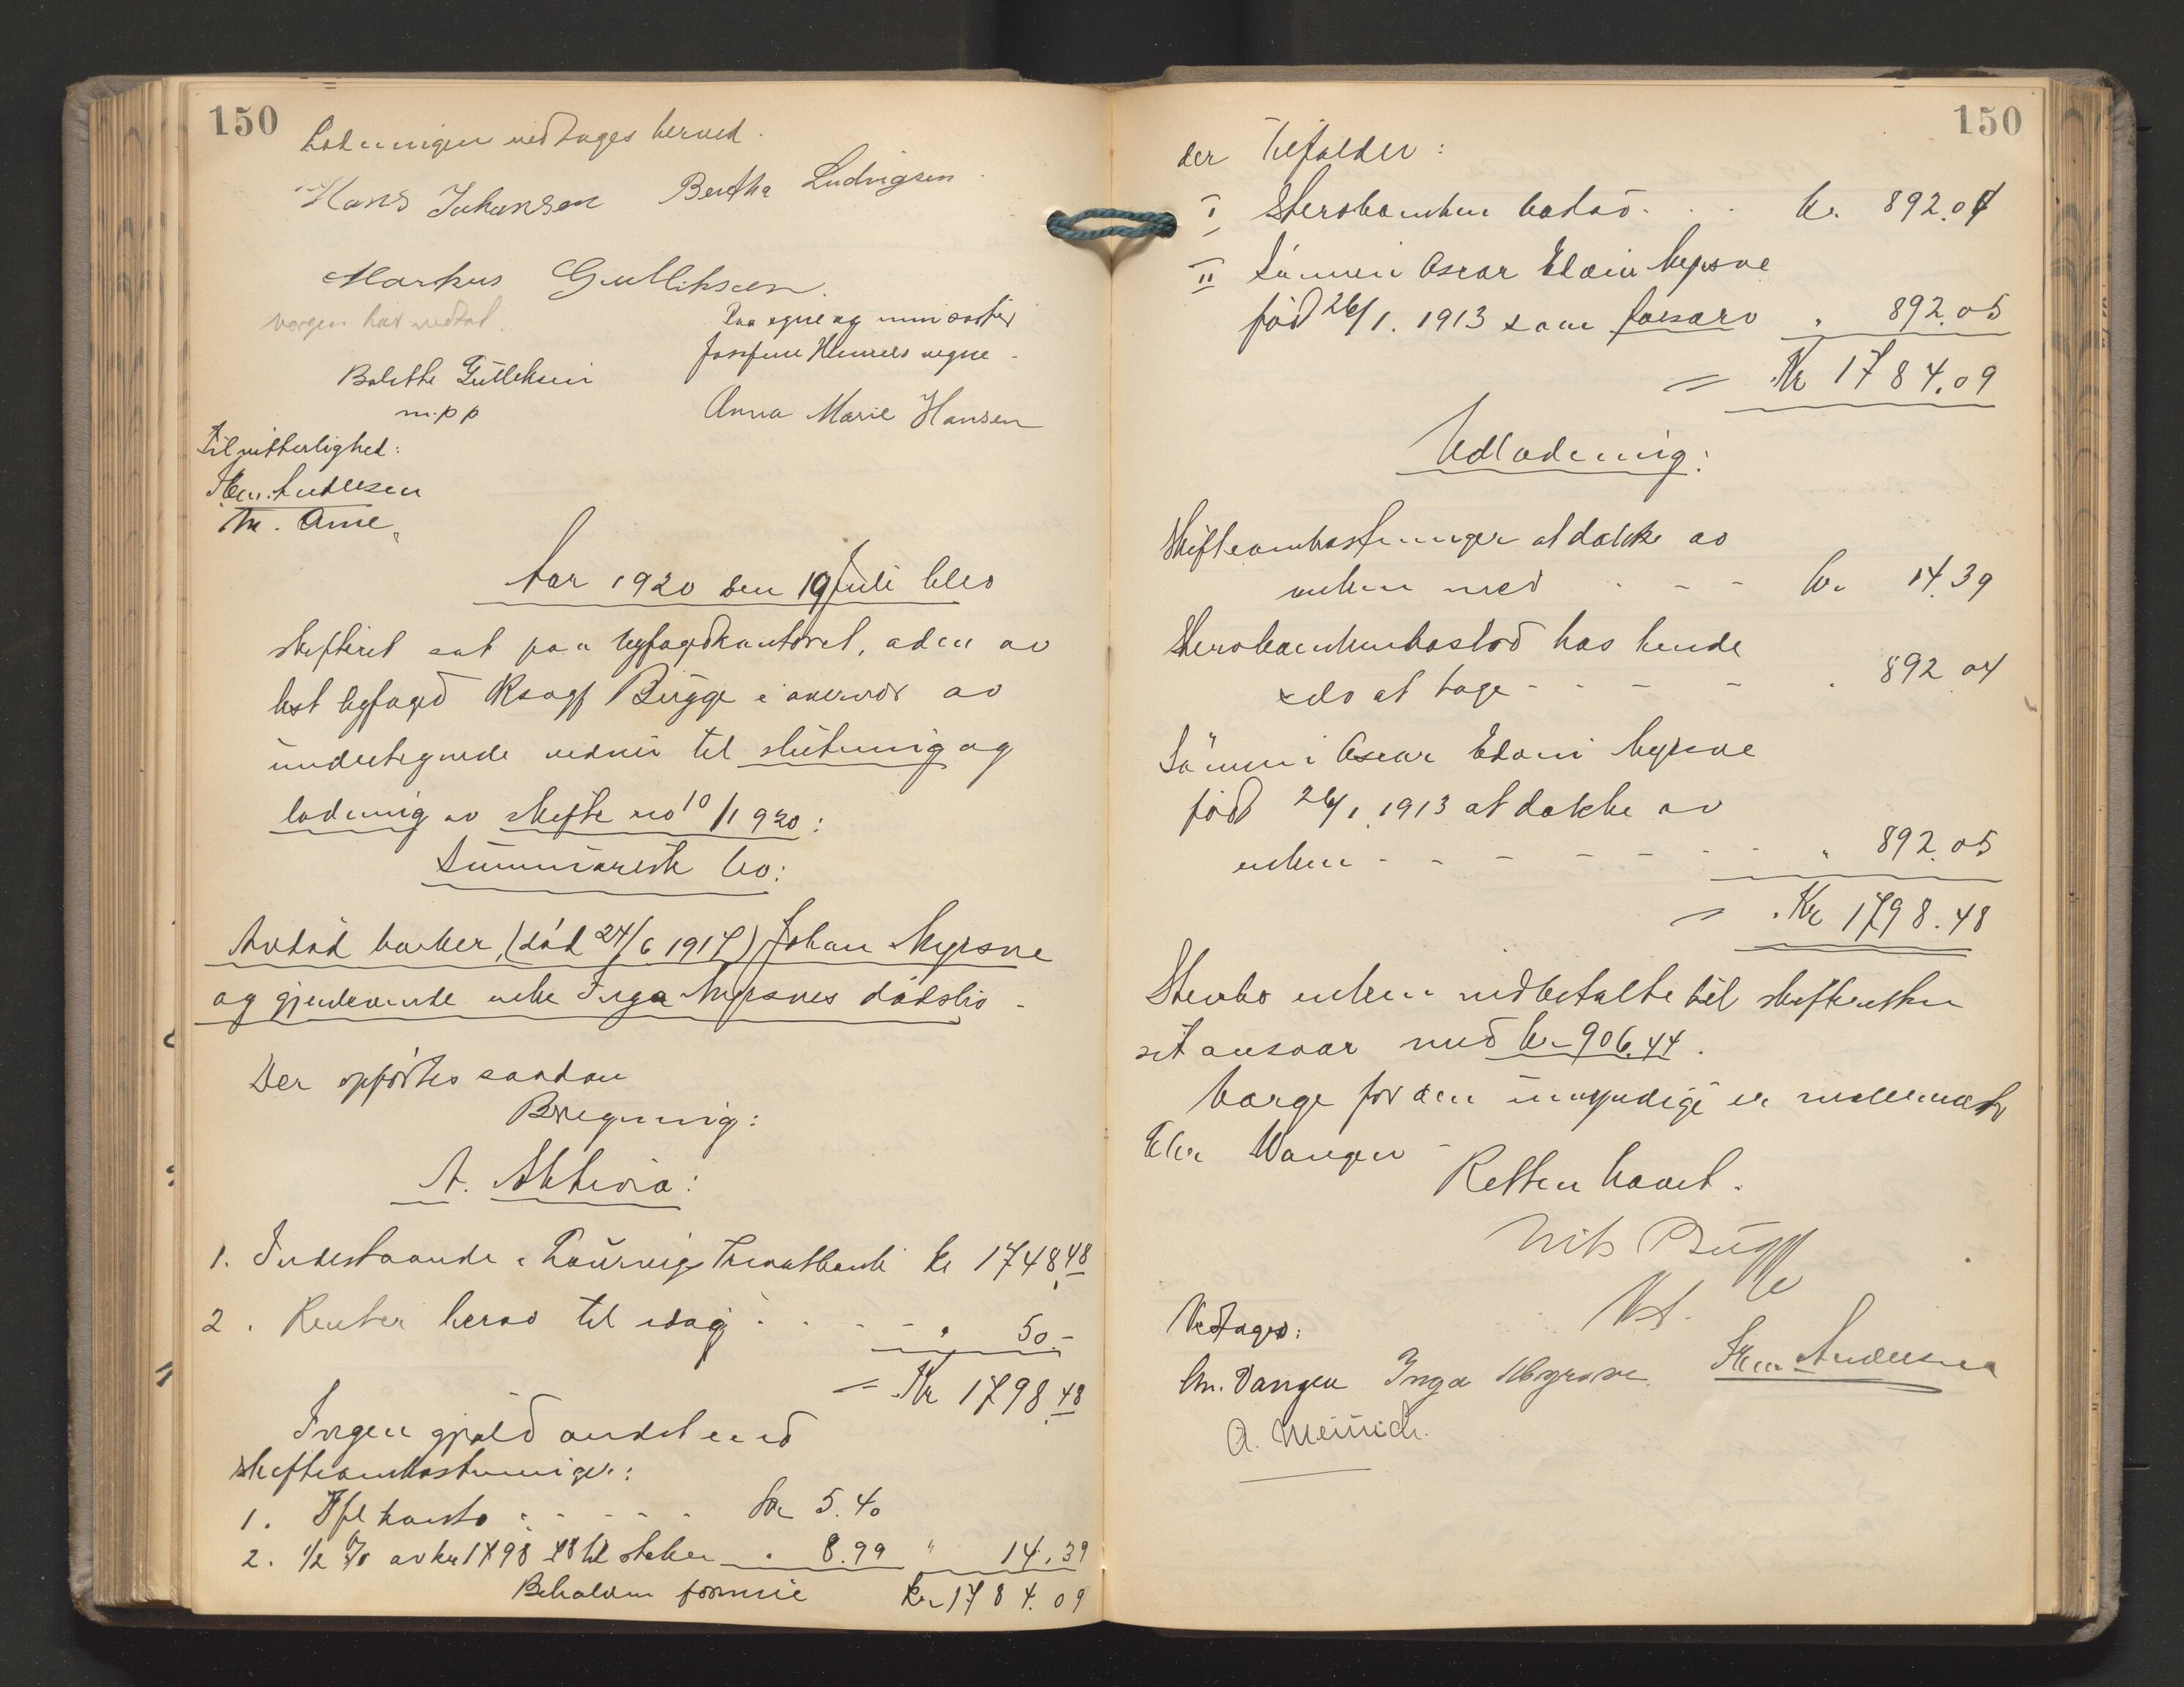 150
Lodningen vedtages herved.
Hans Johansen Bertha Ludvigsen
Markus Gulliksen
vergen har vedtat.
Paa egne og min søster
Josefine vegne
Bolette Gulliksen
m.p.p
Anna Marie Hansen
Til vitterlighed:
Herm. Andersen
M. Arne
Aar 1920 den 19 Juli blev
skifteret sat paa byfogdkontoret, aden av
kst byfogd Ksagf Bugge i overvær av
undertegnede vidner til slutning og
lodning av skifte no 10/1920:
Summarisk bo:
Avdød banker, (død 24/6 1917) Johan Myrsve
og gjenlevende enke Inga Myrsves dødsbo
Der opførtes saadan
Beregning:
A. Aktiva:
1. Indestaaende i Laurvigs Privatbank kr 1748 48
2. Renter herav til idag " 50.-
= Kr 1798.48
Ingen gjæld andet end
skifteomkostninger:
1. konto kr 5.40
2. 1/2 % av kr 1798 48 til staten " 8.99 " 14.39
Beholden formue kr 1784.09
150
der Tilfalder:
I Stervboenken kr. 892.04
II Sønnen Oscar Edvin Myrsve
fød 26/1. 1913 som farsarv " 892.05
= Kr 1784.09
Udlodning:
Skifteomkostninger at dække av
enken med kr. 14.39
Stervboenken has hende
selv at tage " 892 04
Sønnen Oscar Edvin Myrsve
fød 26/1. 1913 at dække av
enken " 892.05
= Kr 1798.48
Stervboenken indbetalte til skifteretten
sit ansvar med kr 906.44.
Verge for den umyndige er
Chr Wangen
Retten hævet.
Nils Bugge
Kst.
Vedtages:
Chr. Vangen Inga Myrsve. Herm Andersen
A. Meinich.